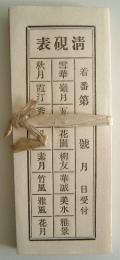 清硯表
着番第 號 月 日受付
雪華 嶺月 花園 柳友 華誠 美水 雅景
秋月 霞汀 素月 竹風 雅風 花月